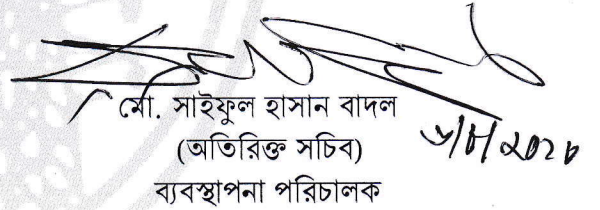 মো. সাইফুল হাসান বাদল
(অতিরিক্ত সচিব)
ব্যবস্থাপনা পরিচালক